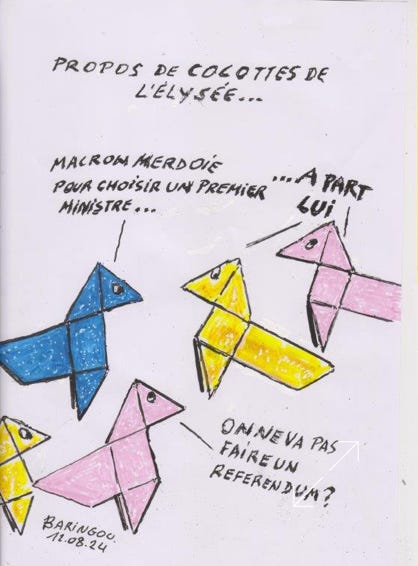 PROPOS DE COCOTTES DE
L'ÉLYSÉE...
MACRON MERDOIE
POUR CHOISIR UN PREMIER
MINISTRE...
....A PART
LUI
ON NE VA PAS
FAIRE UN
REFERENDUM?
BARINGOU.
12.08.24